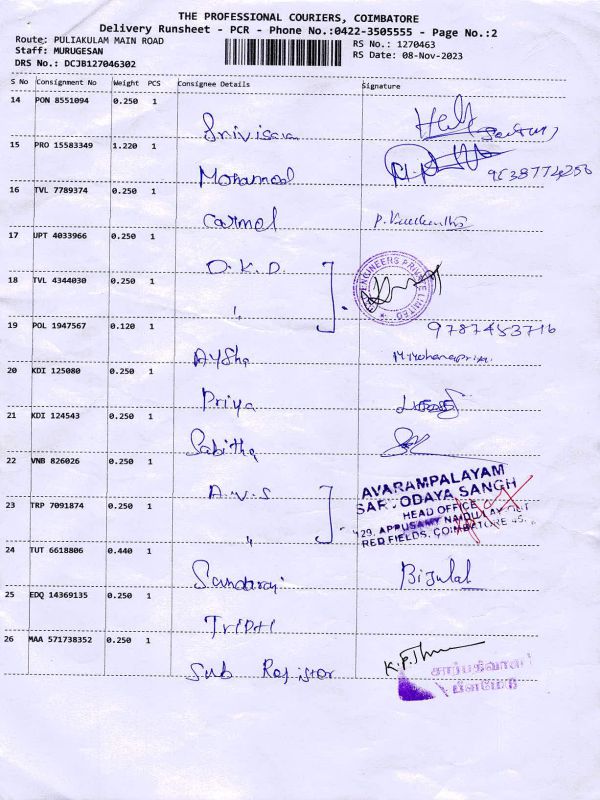 THE PROFESSIONAL COURIERS, COIMBATORE
Delivery Runsheet - PCR - Phone No.:0422-3505555 - Page No.:2
Route: PULIAKULAM MAIN ROAD
Staff: MURUGESAN
DRS No.: DCJB127046302
RS No.: 1270463
RS Date: 08-Nov-2023
S No Consignment No Weight PCS Consignee Details Signature
14 PON 8551094 0.250 1
15 PRO 15583349 1.220 1
Mohamed
9638774256
16 TVL 7789374 0.250 1
Carmel
17 UPT 4033966 0.250 1
D.K.D.
18 TVL 4344030 0.250 1
"
ENGINEERS PRIVATE LIMITED
9787453716
19 POL 1947567 0.120 1
Aysha M.Mohanapriya.
20 KDI 125080 0.250 1
Priya
21 KDI 124543 0.250 1
Sabitha
22 VNB 826026 0.250 1
A.V.S
AVARAMPALAYAM
SARVODAYA SANGH
HEAD OFFICE
23 TRP 7091874 0.250 1
"
APPUSAMY NAIDU LAYOUT
RED FIELDS, COIMBATORE 45.
24 TUT 6618806 0.440 1
Sundaraj Bijulal
25 EDQ 14369135 0.250 1
Tripti
26 MAA 571738352 0.250 1
Sub Register